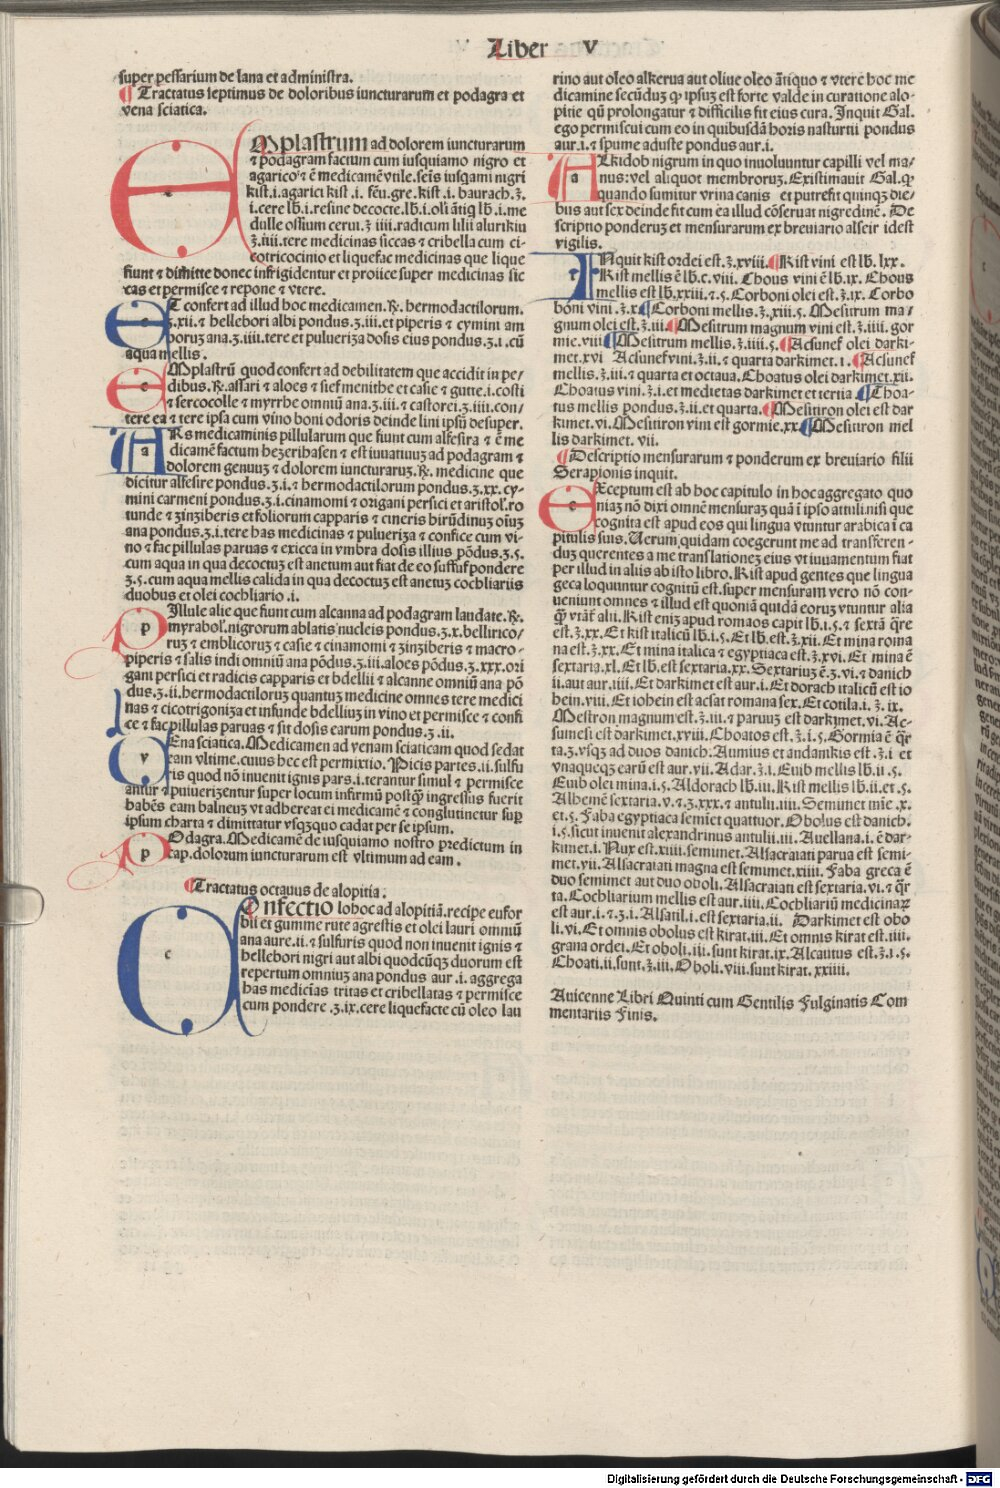 Liber V
super pessarium de lana et administra.
¶ Tractatus septimus de doloribus iuncturarum et podagra et
vena sciatica.
EMplastrum ad dolorem iuncturarum
⁊ podagram factum cum iusquiamo nigro et
agarico: ⁊ ē medicamē vtile. seīs iusqami nigri
kist .i. agarici kist .i. fēu. gre. kist .i. baurach. ʒ.
i. cere lb. i. resine decocte. lb. i. olī ātiq̄ lb. i. me
dulle ossium cerui. ʒ iiii. radicum lilii alurikiu
ʒ. iiii. tere medicinas siccas ⁊ cribella cum ci-
cotricocinio et liquefac medicinas que lique
fiunt ⁊ dimitte donec infrigidentur et proiice super medicinas sic
cas et permisce ⁊ repone ⁊ vtere.
ET confert ad illud hoc medicamen. ℞. hermodactilorum.
ʒ. xii. ⁊ hellebori albi pondus. ʒ. iii. et piperis ⁊ cymini am
borum ana. ʒ. iiii. tere et pulueriza dosis eius pondus. ʒ. i. cū
aqua mellis.
EMplastrū quod confert ad debilitatem que accidit in pe/
dibus. ℞. assari ⁊ aloes ⁊ sief menithe et casie ⁊ gutte. i. costi
⁊ sercocolle ⁊ myrrhe omniū ana. ʒ. iii. ⁊ castorei. ʒ. iiii. con/
tere ea ⁊ tere ipsa cum vino boni odoris deinde lini ipsū desuper.
ARs medicaminis pillularum que fiunt cum alfesira ⁊ ē me
dicamē factum hezeribasen ⁊ est iuuatiuuȝ ad podagram ⁊
dolorem genuuȝ ⁊ dolorem iuncturaruȝ. ℞. medicine que
dicitur alfesire pondus. ʒ. i. ⁊ hermodactilorum pondus. ʒ. xx. cy-
mini carmeni pondus. ʒ. i. cinamomi ⁊ origani persici et aristol'. ro
tunde ⁊ zinziberis et foliorum capparis ⁊ cineris hirūdinuȝ oīuȝ
ana pondus. ʒ. i. tere has medicinas ⁊ pulueriza ⁊ confice cum vi-
no ⁊ fac pillulas paruas ⁊ exicca in vmbra dosis illius pōdus. ʒ. 5.
cum aqua in qua decoctuȝ est anetum aut fiat de eo suffuf pondere
ʒ. 5. cum aqua mellis calida in qua decoctuȝ est anetuȝ cochliariis
duobus et olei cochliario .i.
PIllule alie que fiunt cum alcanna ad podagram laudate. ℞.
myrabol'. nigrorum ablatis nucleis pondus. ʒ. x. bellirico/
ruȝ ⁊ emblicoruȝ ⁊ casie ⁊ cinamomi ⁊ zinziberis ⁊ macro-
piperis ⁊ salis indi omniū ana pōdus. ʒ. iii. aloes pōdus. ʒ. xxx. ori
gani persici et radicis capparis et bdellii ⁊ alcanne omniū ana pō
dus. ʒ. ii. hermodactiloruȝ quantuȝ medicine omnes tere medici
nas ⁊ cicotrigoniza et infunde bdellium in vino et permisce ⁊ confi
ce ⁊ fac pillulas paruas ⁊ sit dosis earum pondus. ʒ. ii.
VEna sciatica. Medicamen ad venam sciaticam quod sedat
eam vltime. cuius hec est permixtio. Picis partes. ii. sulfu
ris quod nō inuenit ignis pars. i. terantur simul ⁊ permisce
antur ⁊ puiuerizentur super locum infirmū postq̄ȝ ingressus fuerit
habēs eam balneuȝ vt adhereat ei medicamē ⁊ conglutinetur sup
ipsum charta ⁊ dimittatur vsqȝquo cadat per se ipsum.
POdagra. Medicamē de iusquiamo nostro predictum in
cap. dolorum iuncturarum est vltimum ad eam.
¶ Tractatus octauus de alopitia.
COnfectio lohoc ad alopitiā. recipe eufor
bii et gumme rute agrestis et olei lauri omniū
ana aure. ii. ⁊ sulfuris quod non inuenit ignis ⁊
hellebori nigri aut albi quodcūqȝ duorum est
repertum omniuȝ ana pondus aur. i. aggrega
has medicīas tritas et cribellatas ⁊ permisce
cum pondere .ʒ. ix. cere liquefacte cū oleo lau
rino aut oleo alkerua aut oliue oleo ātiquo ⁊ vtere hoc me
dicamine secūduȝ qꝫ ipsuȝ est forte valde in curatione alo-
pitie qū prolongatur ⁊ difficilis fit eius cura. Inquit Gal.
ego permiscui cum eo in quibusdā horis nasturtii pondus
aur. i. ⁊ spume aduste pondus aur. i.
ALkidob nigrum in quo inuoluuntur capilli vel ma/
nus: vel aliquot membroruȝ. Existimauit Gal. qꝫ
quando sumitur vrina canis et putrefit quinqȝ die/
bus aut sex deinde fit cum ea illud cōseruat nigredinē. De
scriptio ponderuȝ et mensurarum ex breuiario alseir idest
vigilis.
INquit kist ordei est. ʒ. xviii. ¶ Kist vini est lb. lxx.
Kist mellis ē lb. c. viii. Chous vini ē lb. ix. Chous
mellis est lb. xxiii. ⁊. 5. Corboni olei est. ʒ. ix. Corbo
boni vini. ʒ. x ¶ Corboni mellis. ʒ. xiii. 5. Mesutrum ma/
gnum olei est. ʒ. iii ¶ Mesitrum magnum vini est. ʒ. iiii. gor
mie. viii ¶ Mesitrum mellis. ʒ. iiii. 5. ¶ Acsunef olei darki-
met. xvi Acsunef vini. ʒ. ii. ⁊ quarta darkimet. i. ¶ Acsunef
mellis. ʒ. iii. ⁊ quarta et octaua. Choatus olei darkimet. xii.
Choatus vini. ʒ. i. et medietas darkimet et tertia ¶ Choa-
tus mellis pondus. ʒ. ii. et quarta. ¶ Mesitiron olei est dar
kimet. vi. Mesitiron vini est gormie. xx. ¶ Mesitiron mel
lis darkimet. vii.
¶ Descriptio mensurarum ⁊ ponderum ex breuiario filii
Serapionis inquit.
EXceptum est ab hoc capitulo in hoc aggregato quo
niaȝ nō dixi omnē mensuraȝ quā ī ipso attuli nisi que
cognita est apud eos qui lingua vtuntur arabica ī ca
pitulis suis. Uerum quidam coegerunt me ad transferen-
duȝ querentes a me translationeȝ eius vt iuuamentum fiat
per illud in aliis ab isto libro. Kist apud gentes que lingua
geca loquuntur cognitū est. super mensuram vero nō con-
ueniunt omnes ⁊ illud est quoniā quidā eoruȝ vtuntur alia
q̄ȝ vtāt' alii. Kist enīȝ apud romaos capit lb. i. 5. ⁊ sextā q̄re
est. ʒ. xx. Et kist italicū lb. i. 5. Et lb. est. ʒ. xii. Et mina roma
na est. ʒ. xx. Et mina italica ⁊ egyptiaca est. ʒ. xvi. Et mina ē
sextaria. xl. Et lb. est sextaria. xx. Sextarius ē. ʒ. vi. ⁊ danich
ii. aut aur. iiii. Et darkimet est aur. i. Et dorach italicū est io
hein. viii. Et iohein est acsat romana sex. Et cotila. i. ʒ. ix.
Mestron magnum est. ʒ. iii. ⁊ paruuȝ est darkymet. vi. Ac-
sumesi est darkimet. xviii. Choatos est. ʒ. i. 5. Gormia ē q̄r
ta. ʒ. vsqȝ ad duos danich. Aumius et andamkis est. ʒ. i. et
vnaqueqȝ earū est aur. vii. Adar. ʒ. i. Euib mellis lb. ii. 5.
Euib olei mina. i. 5. Aldorach lb. iii. Kist mellis lb. ii. et. 5.
Alhemē sextaria. v. ⁊. ʒ. xxx. ⁊ antulu. iiii. Semunet mīe. x.
et. 5. Faba egyptiaca semiet quattuor. Obolus est danich.
i. 5. sicut inuenit alexandrinus antulu. iii. Auellana. i. ē dar-
kimet. i. Nux est. xiiii. semunet. Alsacraiati parua est semi-
met. vii. Alsacraiati magna est semimet. xiiii. Faba greca ē
duo semimet aut duo oboli. Alsacraiati est sextaria. vi. ⁊ q̄r
ta. Cochliarium mellis est aur. iiii. Cochliariū medicinaꝝ
est aur. i. ⁊ ʒ. i. Alsatil. i. est sextaria. ii. Darkimet est obo
li. vi. Et omnis obolus est kirat. iii. Et omnis kirat est. iiii.
grana ordei. Et oboli. iii. sunt kirat. ix. Alcautus est. ʒ. i. 5.
Choati. ii. sunt. ʒ. iii. Oboli. viii. sunt kirat. xxiiii.
Auicenne Libri Quinti cum Gentilis Fulginatis Com
mentariis Finis.
Digitalisierung gefördert durch die Deutsche Forschungsgemeinschaft - DFG